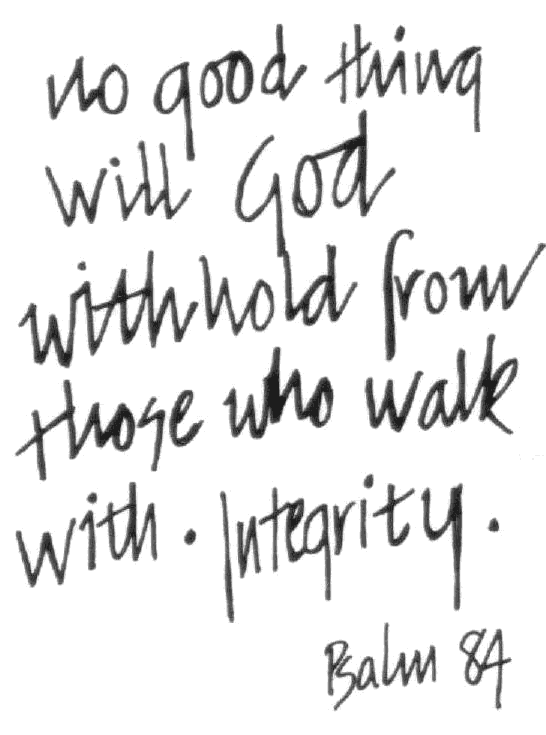 no good thing
will God
withhold from
those who walk
with . Integrity .
Psalm 84